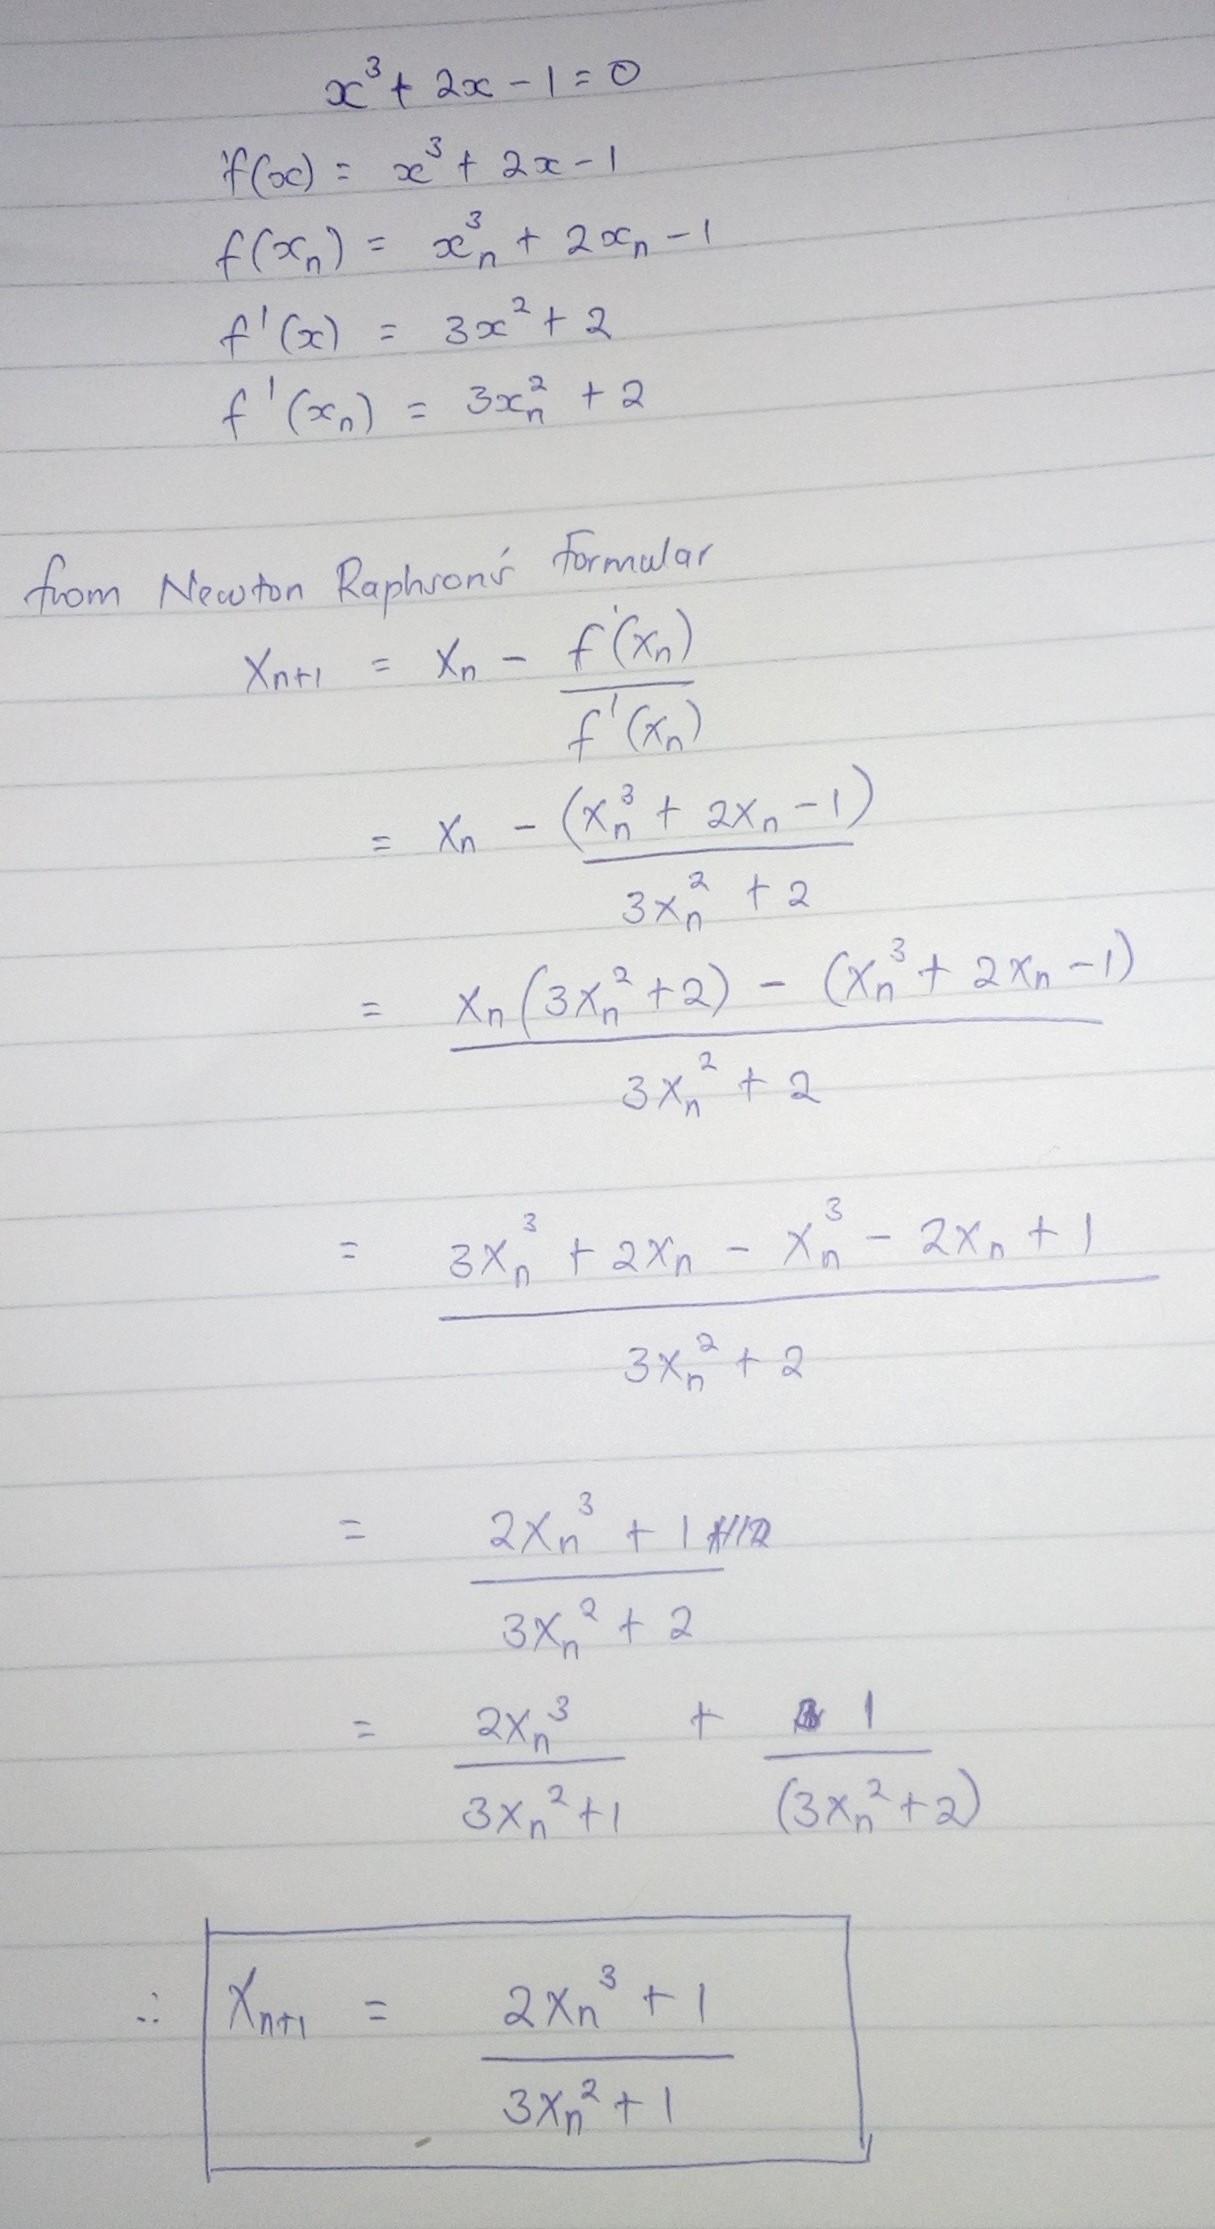 x³ + 2x - 1 = 0
f(x) = x³ + 2x - 1
f(xₙ) = xₙ³ + 2xₙ - 1
f'(x) = 3x² + 2
f'(xₙ) = 3xₙ² + 2
from Newton Raphson's Formular
xₙ₊₁ = xₙ - f(xₙ)
f'(xₙ)
= xₙ - (xₙ³ + 2xₙ - 1)
3xₙ² + 2
= xₙ(3xₙ² + 2) - (xₙ³ + 2xₙ - 1)
3xₙ² + 2
= 3xₙ³ + 2xₙ - xₙ³ - 2xₙ + 1
3xₙ² + 2
= 2xₙ³ + 1
3xₙ² + 2
= 2xₙ³ + 1
3xₙ² + 1 (3xₙ² + 2)
∴ xₙ₊₁ = 2xₙ³ + 1
3xₙ² + 1